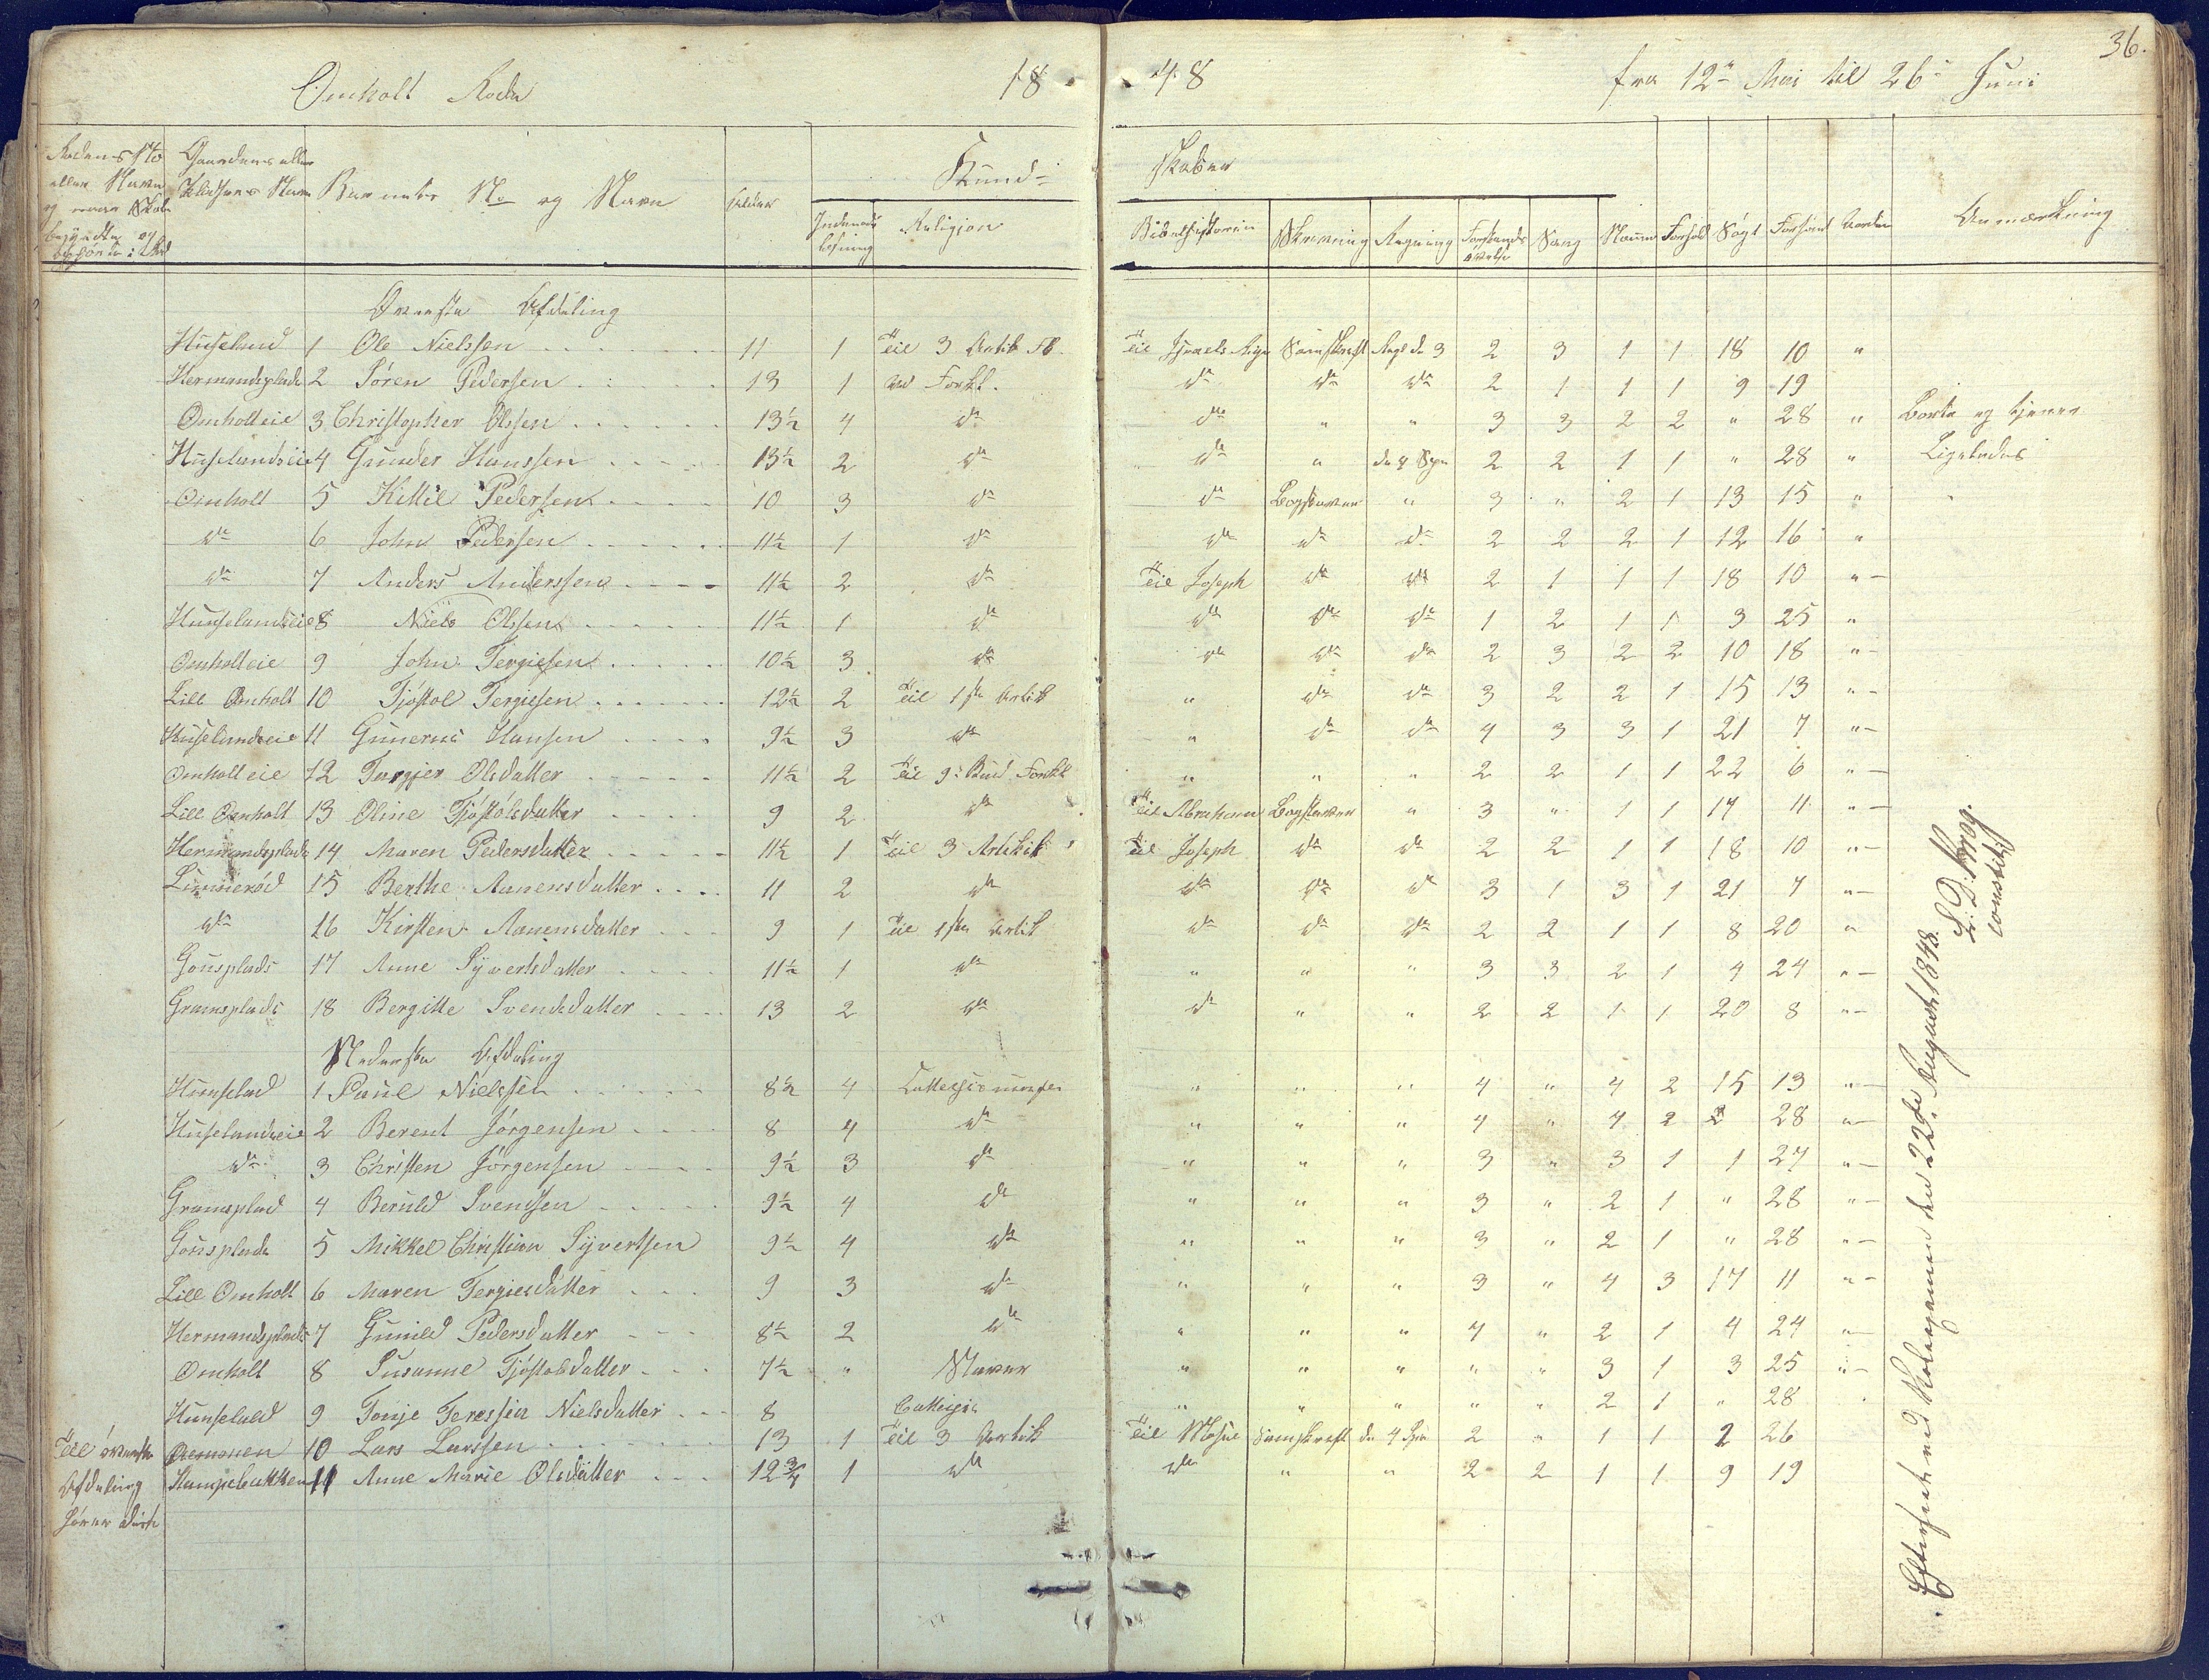 36.
Omholt Rode 1848 fra 12te Mai til 26de Juni
Rodens No eller Navn og naar Skole begyndte og ophørte i den
Gaardens eller Pladsens Navn
Barnets No og Navn
Alder
Kundskaber
Indenads læsning
Religion
Bibelhistorien
Skrivning
Regning
Forstands øvelse
Sang
Nemme
Forhold
Søgt
Forsømt
Anmærkning
Øverste Afdeling
Huselund 1 Ole Nielssen 11 1 Til 3 Artik Til Israels Rige Samskrift 2 3 1 1 18 10 "
Hermandsplads 2 Søren Pedersen 13 1 ud Forkl. do do do 2 1 1 1 9 19
Omholteie 3 Christopher Olssen 13½ 4 do do " " 3 3 2 2 " 28 " Borte og tjener
Huselundseie 4 Gunder Hanssen 13½ 2 do do " 2 2 1 1 " 28 " Ligeledes
Omholt 5 Kittil Pederssen 10 3 do do Bogstaver " 3 " 2 1 13 15 "
do 6 John Pedersen 11½ 1 do do do do 2 2 2 1 12 16 "
do 7 Anders Anderssen 11½ 2 do Til Joseph do do 2 1 1 1 18 10 "
Hunselundseie 8 Niels Olssen 11½ 1 do do do do 1 2 1 1 3 25 "
Omholteie 9 John Tergiesen 10½ 3 do do do do 2 3 2 2 10 18 "
Lill Omholt 10 Tjøstol Tergiesen 12½ 2 Til 1ste Artik " do do 3 2 2 1 15 13 "
Huselundseie 11 Gunerius Hansen 9½ 3 do " do do 4 3 3 1 21 7 "
Omholt eie 12 Torgjer Olsdatter 11½ 2 Til 9de Bud Forkl " " " 2 2 1 1 22 6 "
Lill Omholt 13 Oline Tjøstolsdatter 9 2 do Til Abraham Bogstaver " 3 " 1 1 17 11 "
Hermandsplads 14 Maren Pedersdatter 11½ 1 Til 3 Artikk Til Joseph do do 2 2 1 1 18 10 "
Limmerød 15 Berthe Aanensdatter 11 2 do do do do 3 1 3 1 21 7 "
do 16 Kirsten Aanensdatter 9 1 Til 1ste Artik do do do 2 2 1 1 8 20 "
Gousplads 17 Anne Syvertsdatter 11½ 1 do " " " 3 3 2 1 4 24 "
Gramsplads 18 Bergitte Svendsdatter 13 2 do do " " 2 2 1 1 20 8 "
Nederste Afdeling
Hunselud 1 Paul Nielssen 8½ 4 " " " 4 " 4 2 15 13 "
Huselundseie 2 Berent Jørgensen 8 4 do " " " 4 " 4 2 28 "
do 3 Christen Jørgensen 9½ 3 do " " " 3 " 3 1 1 27 "
Gramsplad 4 Beruld Svendsen 9½ 4 do " " " 3 " 2 1 " 28 "
Gousplads 5 Mikkel Christian Syvertsen 9½ 4 do " " " 3 " 2 1 " 28 "
Lill Omholt 6 Maren Tergiesdatter 9 3 do " " " 3 " 4 3 17 11 "
Hermandsplads 7 Gunild Pedersdatter 8½ 2 do " " " 4 " 2 1 4 24 "
Omholt 8 Susanne Tjøstolsdatter 7½ " Staver " " " " " 3 1 3 25 "
Hunselud 9 Tonje Teressia Nielsdatter 8 " " " " " 2 1 " 28
Til øverste Afdeling hører disse
10 Lars Larssen 13 1 Til 3 Artik Til Mose Samskrift de 4 Spe 2 " 1 1 2 26
Stampebakken 11 Anne Marie Olsdatter 12¾ 1 do do " " 2 2 1 1 9 19
Efterseet ved Kolagemen den 22de August 1848.
L. D. Krog.
constit